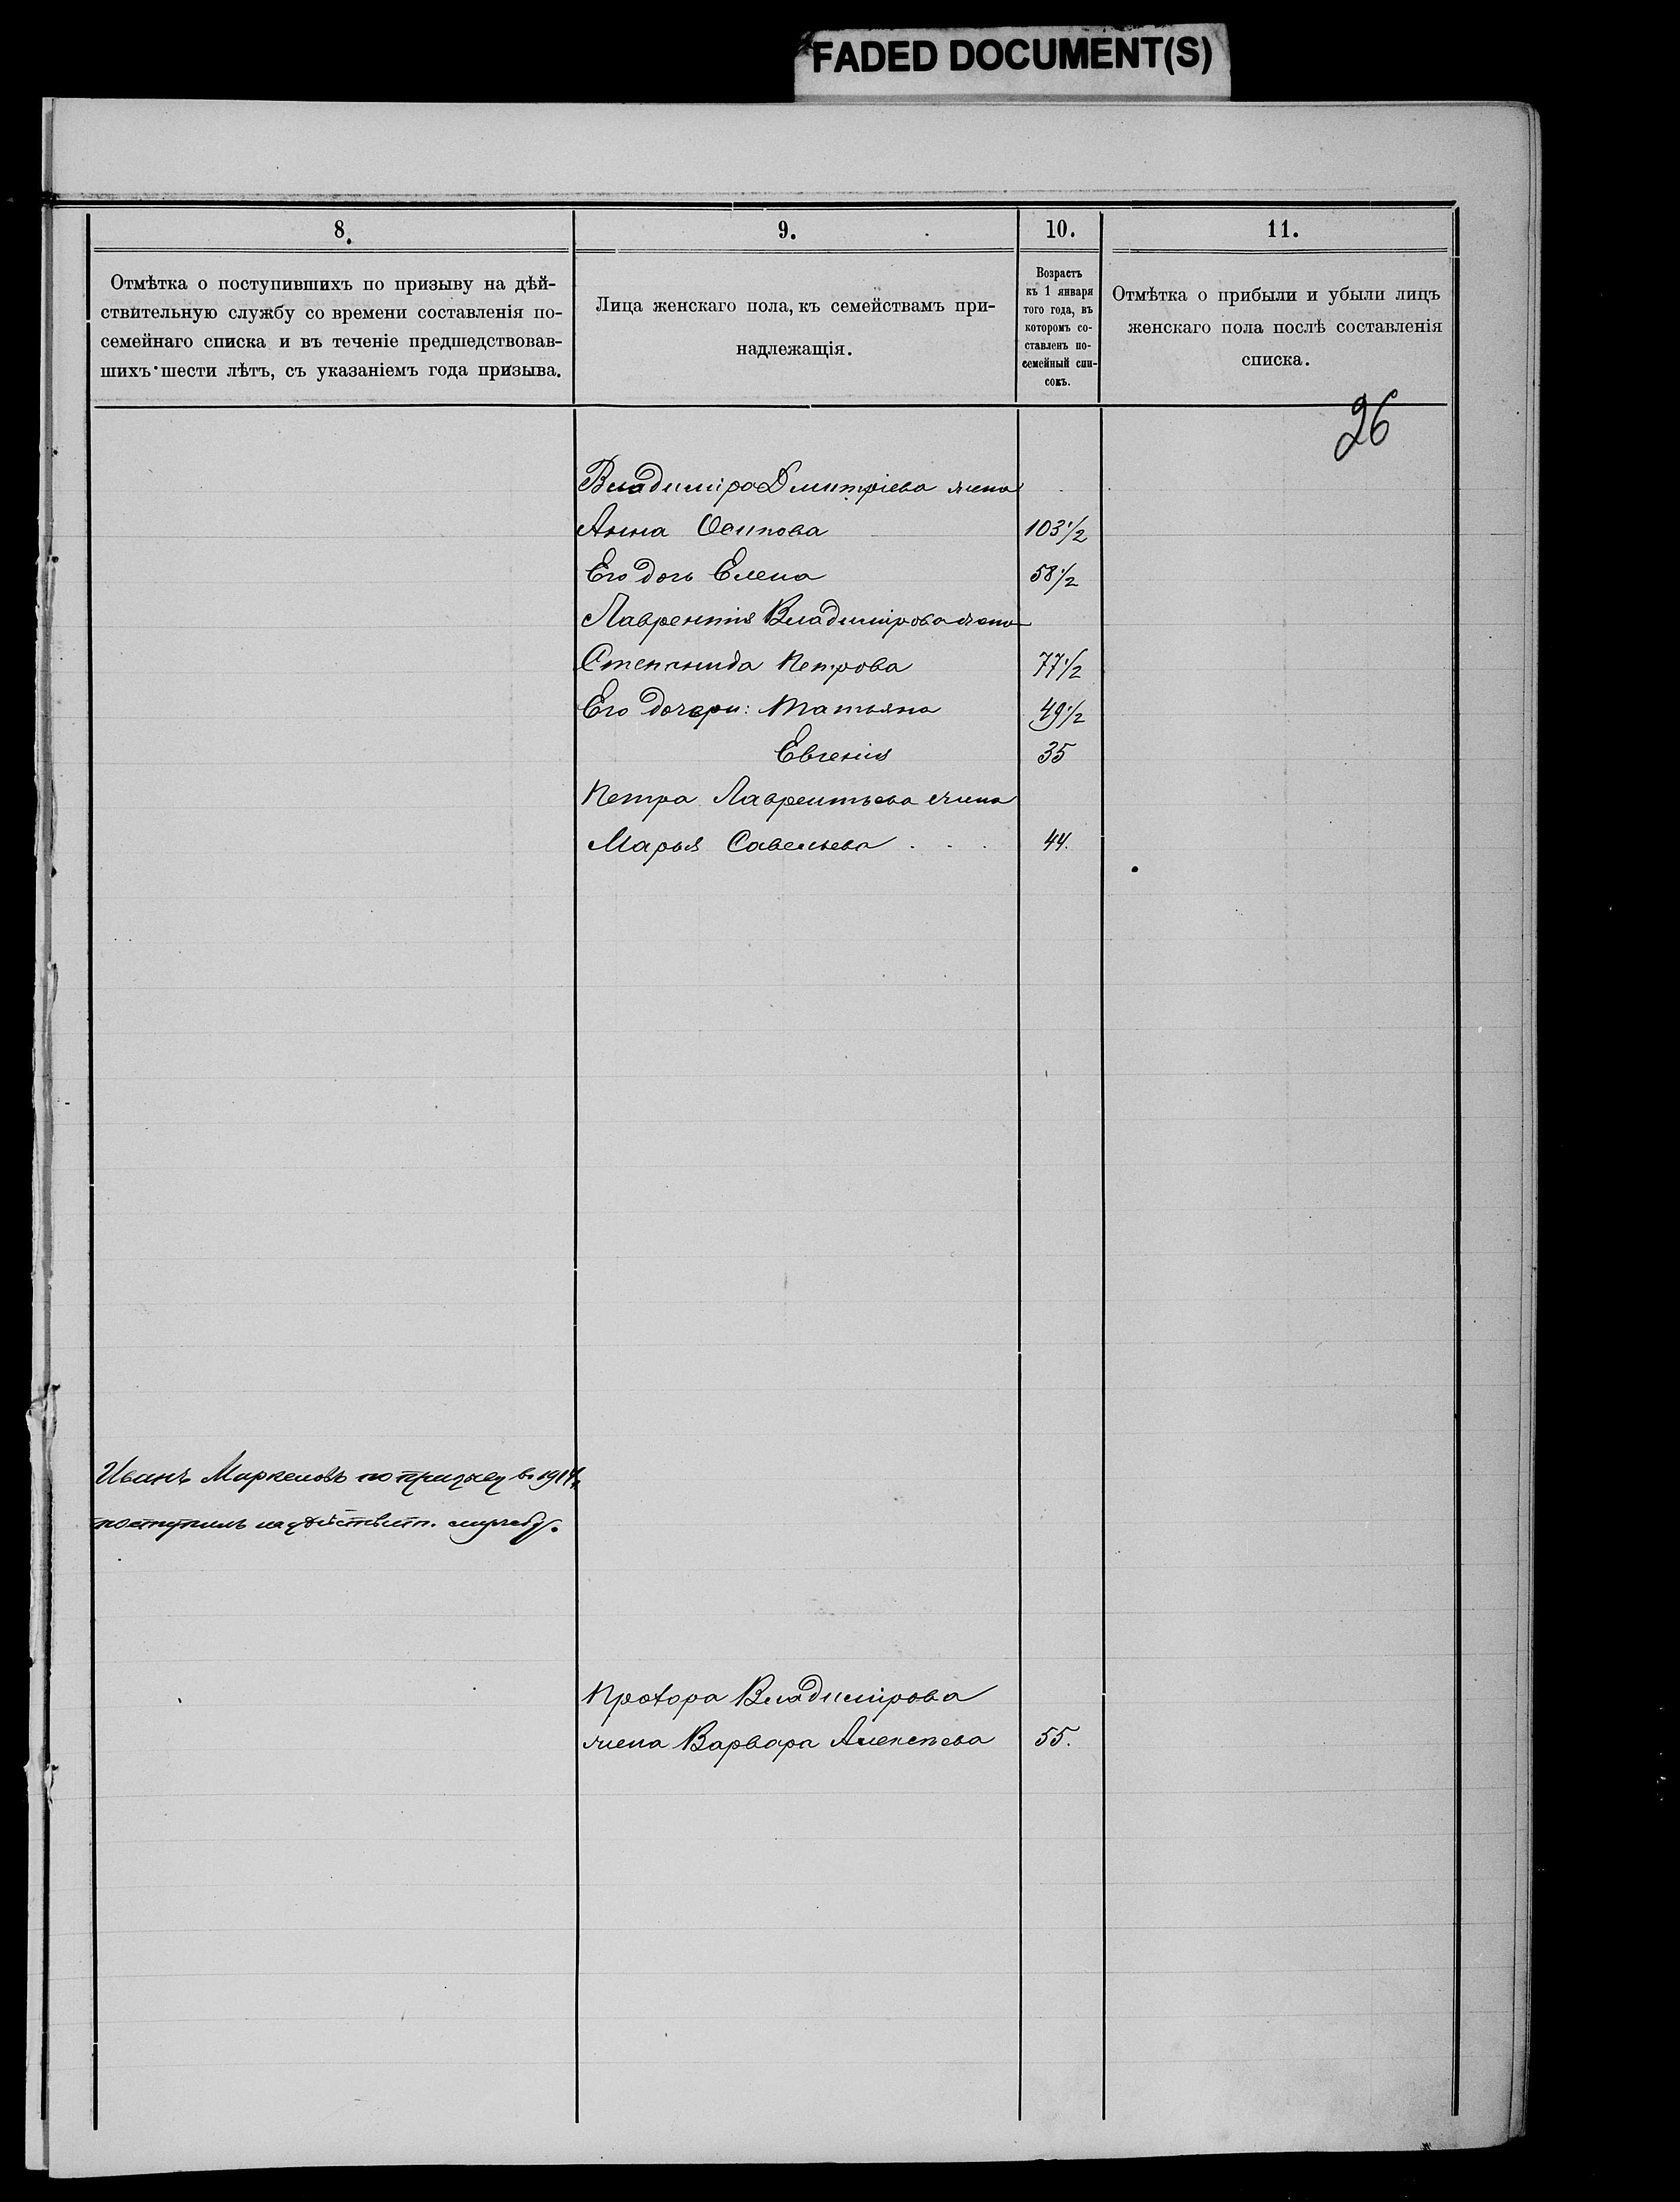 FADED DOCUMENT(S)
8.
9.
10.
11.
Отмѣтка о поступившихъ по призыву на дѣй-
ствительную службу со времени составленія по-
семейнаго списка и въ теченіе предшедствовав-
шихъ шести лѣтъ, съ указаніемъ года призыва.
Лица женскаго пола, къ семействамъ при-
надлежащія.
Возрастъ
къ 1 января
того года, въ
которомъ со-
ставленъ по-
семейный спи-
сокъ.
Отмѣтка о прибыли и убыли лицъ
женскаго пола послѣ составленія
списка.
26
Владиміра Дмитріева жена
Анна Осипова 103 1/2
Его дочь Елена 58 1/2
Лаврентія Владимірова жена
Степанида Петрова 77 1/2
Его дочери: Татьяна 49 1/2
Евгенія 35
Петра Лаврентьева жена
Марья Савельева . . . 44.
Иванъ Маркеловъ по призыву в 1914
поступилъ на действит. службу.
Прохора Владимірова
жена Варвара Алексѣева 55.